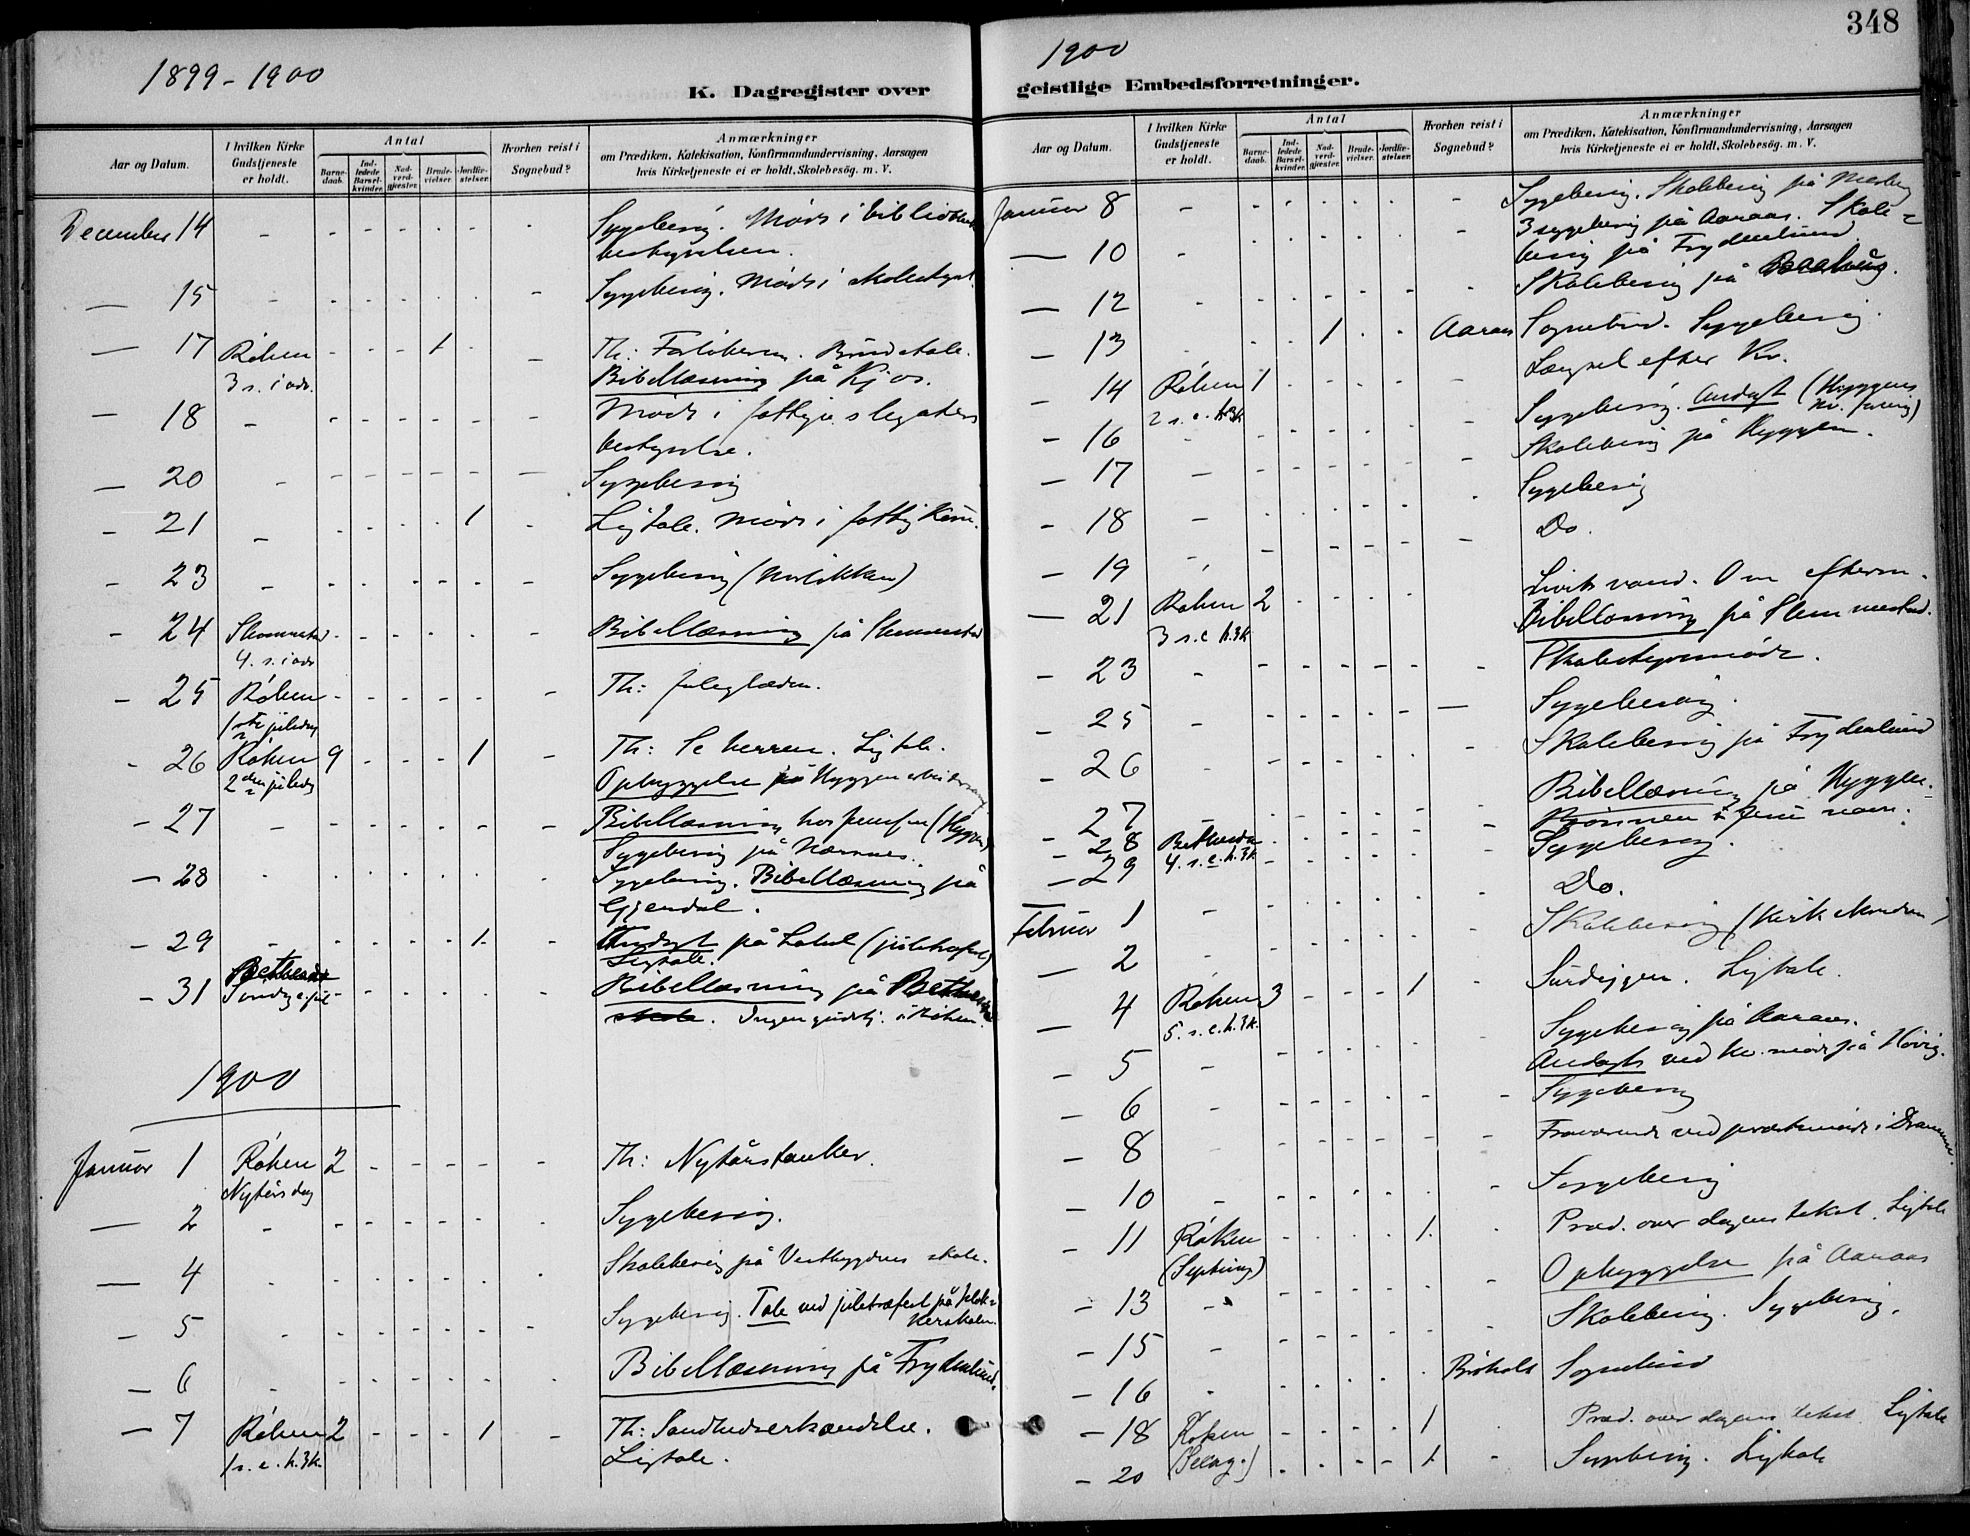 348
1899-1900
1900
K. Dagregister over
geistlige Embedsforretninger.
Aar og Datum.
I hvilken Kirke Gudstjeneste er holdt.
Antal
Barnedaab.
Indledede Barselkvinder.
Nadverdgjæster.
Brudevielser.
Jordfæstelser.
Hvorhen reist i Sognebud?
Anmærkninger
om Prædiken, Katekisation, Konfirmandundervisning, Aarsagen
hvis Kirketjeneste ei er holdt, Skolebesøg. m. V.
December 14 Sygebesøg. Møde i bibliothek
bestyrelsen.
15 Sygebesøg. Møde i skolestyret
17 Røken 1 Th: Forløberen. Brudetale.
3 s. i adv. Bibellæsning på Kjos.
18 Møde i legaters
bestyrelse.
20 Sygebesøg
21 1 Ligtale. Møde i
23 Sygebesøg
24 Slemmestad Bibellæsning på Slemmestad
4. s. i adv
25 Røken Th: Juleglæden.
1ste juledag
26 Røken 9 1 Th: Se herren. Ligtale.
2den juledag Opbyggelse på Hyggen
27 Bibellæsning hos (Hyggen)
Sygebesøg på Nærsnes.
28 Sygebesøg. Bibellæsning på
Gjendal.
29 1 Andagt på (juletræfest)
Ligtale.
31 Bethesda Bibellæsning på Bethesda
Søndag e. jul Ingen gudstj. i Røken.
1900
Januar 1 Røken 2 Th: Nytårstanker.
Nytårsdag
2 Sygebesøg.
4 Skolebesøg på Vestbygdens skole.
5 Sygebesøg. Tale ved juletræfest på Klok=
kerskolen.
6 Bibellæsning på Frydenlund.
7 Røken 2 1 Th: Sandhedserkjendelse.
1 s. e. h. 3k. Ligtale.
Aar og Datum.
I hvilken Kirke Gudstjeneste er holdt.
Antal
Barnedaab.
Indledede Barselkvinder.
Nadverdgjæster.
Brudevielser.
Jordfæstelser.
Hvorhen reist i Sognebud?
Anmærkninger
om Prædiken, Katekisation, Konfirmandundervisning, Aarsagen
hvis Kirketjeneste ei er holdt, Skolebesøg. m. V.
Januar 8 Sygebesøg. Skolebesøg på
10 3 sygebesøg på Aaraas. Skole=
besøg på Frydenlund
12 Skolebesøg på
13 1 Aaraas Sognebud. Sygebesøg.
14 Røken 1 Længsel efter Kr.
2 s. e. h3k
16 Sygebesøg. Andagt (Hyggens
kv. forening)
17 Skolebesøg på Hyggen.
18 Sygebesøg
19 Do.
21 Røken 2 Livets vand. Om efterm.
3 s. e h. 3k Bibellæsning på Slemmestad.
23 Skolestyremøde.
25 Sygebesøg.
26 Skolebesøg på Frydenlund
27 Bibellæsning på Hyggen.
28 Bethesda Bønnen i Jesu navn.
4. s. e. h. 3k
29 Sygebesøg.
Februar 1 Do.
2 Skolebesøg
4 Røken 3 1 Surdeigen. Ligtale.
5. s. e. h. 3k.
5 Sygebesøg på Aaraas.
Andagt ved kv. møde på Høvig.
6 Sygebesøg
8 Fraværende ved præstemøde i Drammen.
10 Sygebesøg
11 Røken 1 Præd. over dagens tekst. Ligtale
(Septuag)
13 Opbyggelse på Aaraas
15 Skolebesøg. Sygebesøg.
16 Bøholt Sognebud
18 Røken 1 Præd. over dagens tekst. Ligtale
(Sexag.)
20 1 Sygebesøg. Ligtale